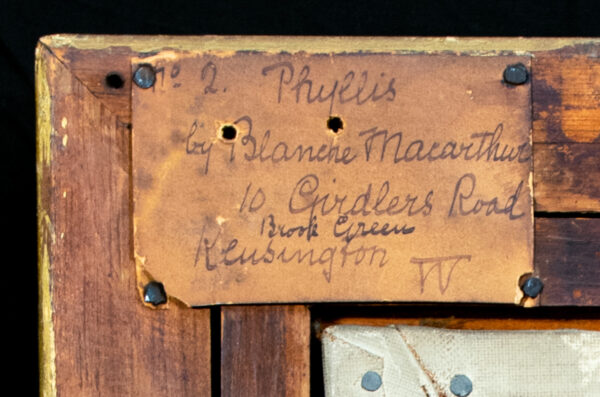 No. 2. Phyllis
by Blanche Macarthur
10 Girdlers Road
Brook Green
Kensington W